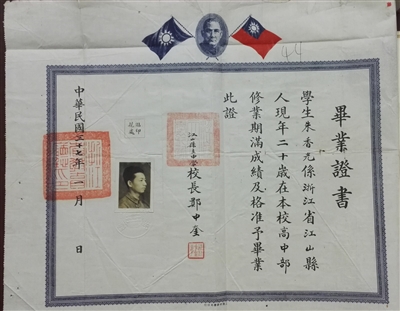 畢業證書
學生朱香元係浙江省江山縣
人現年二十歲在本校高中部
修業期滿成績及格准予畢業
此證
校長鄭中奎
中華民國三十七年一月　日